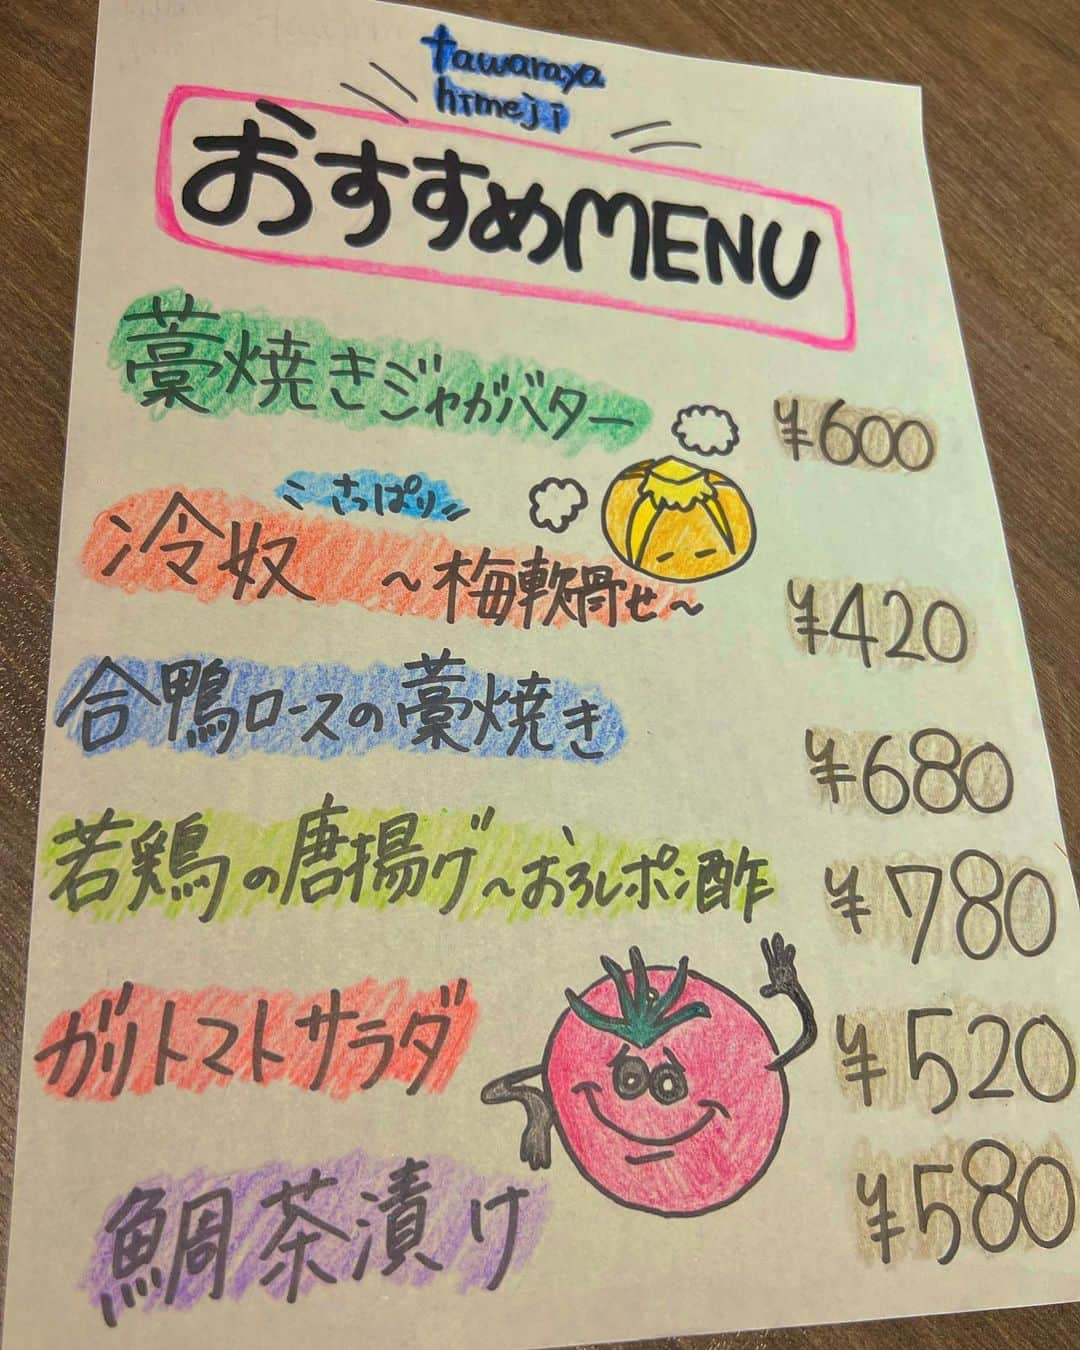 tawaraya
himeji
おすすめMENU
藁焼きジャガバター ¥600
さっぱり
冷奴 〜梅軟骨せ〜 ¥420
合鴨ロースの藁焼き ¥680
若鶏の唐揚げ〜おろしポン酢 ¥780
ガリトマトサラダ ¥520
鯛茶漬け ¥580